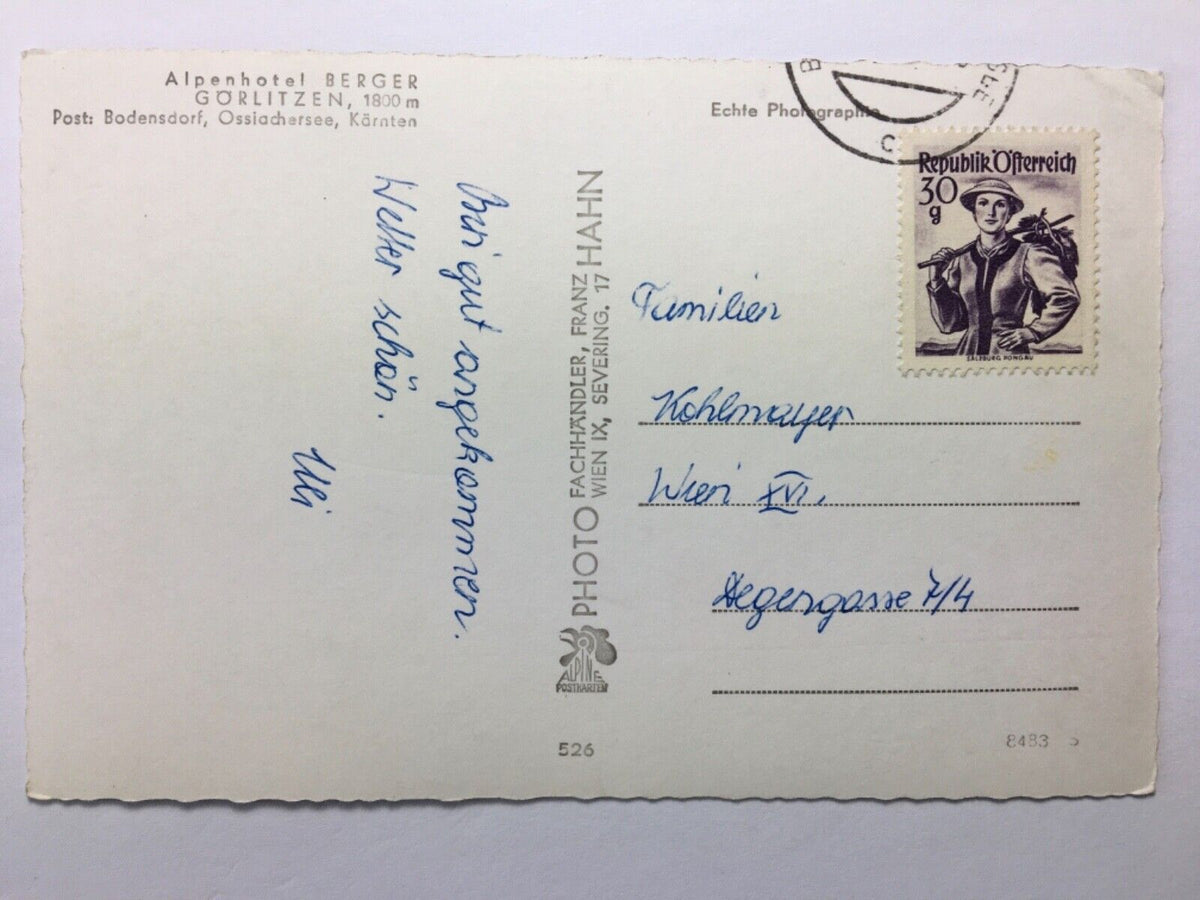 Alpenhotel BERGER
GÖRLITZEN, 1800 m
Post: Bodensdorf, Ossiachersee, Kärnten
Bin gut angekommen.
Wetter schön.
Uli
PHOTO FACHHÄNDLER, FRANZ HAHN
WIEN IX, SEVERING. 17
ALPINE
POSTKARTEN
526
Echte Photographie
C
Republik Österreich
30
g
SALZBURG PONGAU
Familien
Kohlmayer
Wien XVI.
7/4
8483